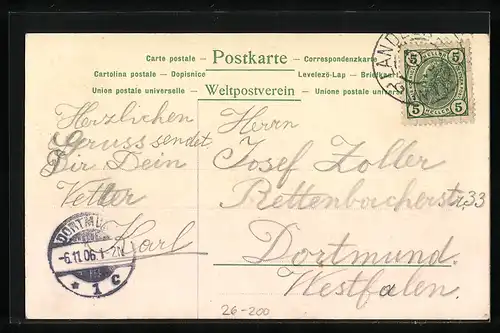 Carte postale – Postkarte – Correspondenzkarte
Cartolina postale – Dopisnice
Levelező-Lap – Briefkaart
Union postale universelle – Weltpostverein – Unione postale universale
5 HELLER 5
5 HELLER 5
Herzlichen
Gruss sendet
Dir Dein
Vetter
Karl
Herrn
Josef Zoller
33
Dortmund.
Westfalen.
DORTMUND
-6.11.06.
* 1 c
26-200